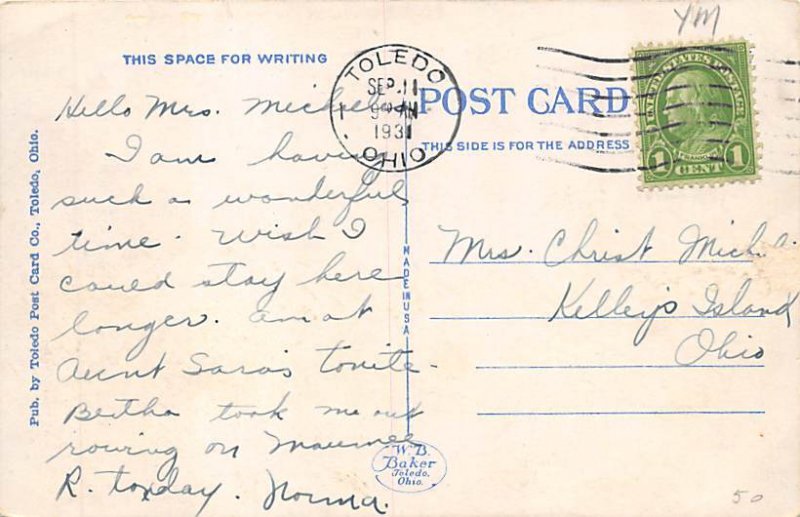 YM
THIS SPACE FOR WRITING
TOLEDO
SEP 11
9 AM
1931
OHIO
1
POST CARD
THIS SIDE IS FOR THE ADDRESS
UNITED STATES POSTAGE
FRANKLIN
1 CENT 1
Hello Mrs.
I am having
such a wonderful
time. Wish I
could stay here
longer. Am at
Aunt Sara's tonite.
Bertha took me out
rowing on Maumee
R. today. Norma.
Mrs. Christ
Kelley's Island
Ohio
MADE IN USA
Pub. by Toledo Post Card Co., Toledo, Ohio.
W.B.
Baker
Toledo,
Ohio.
50